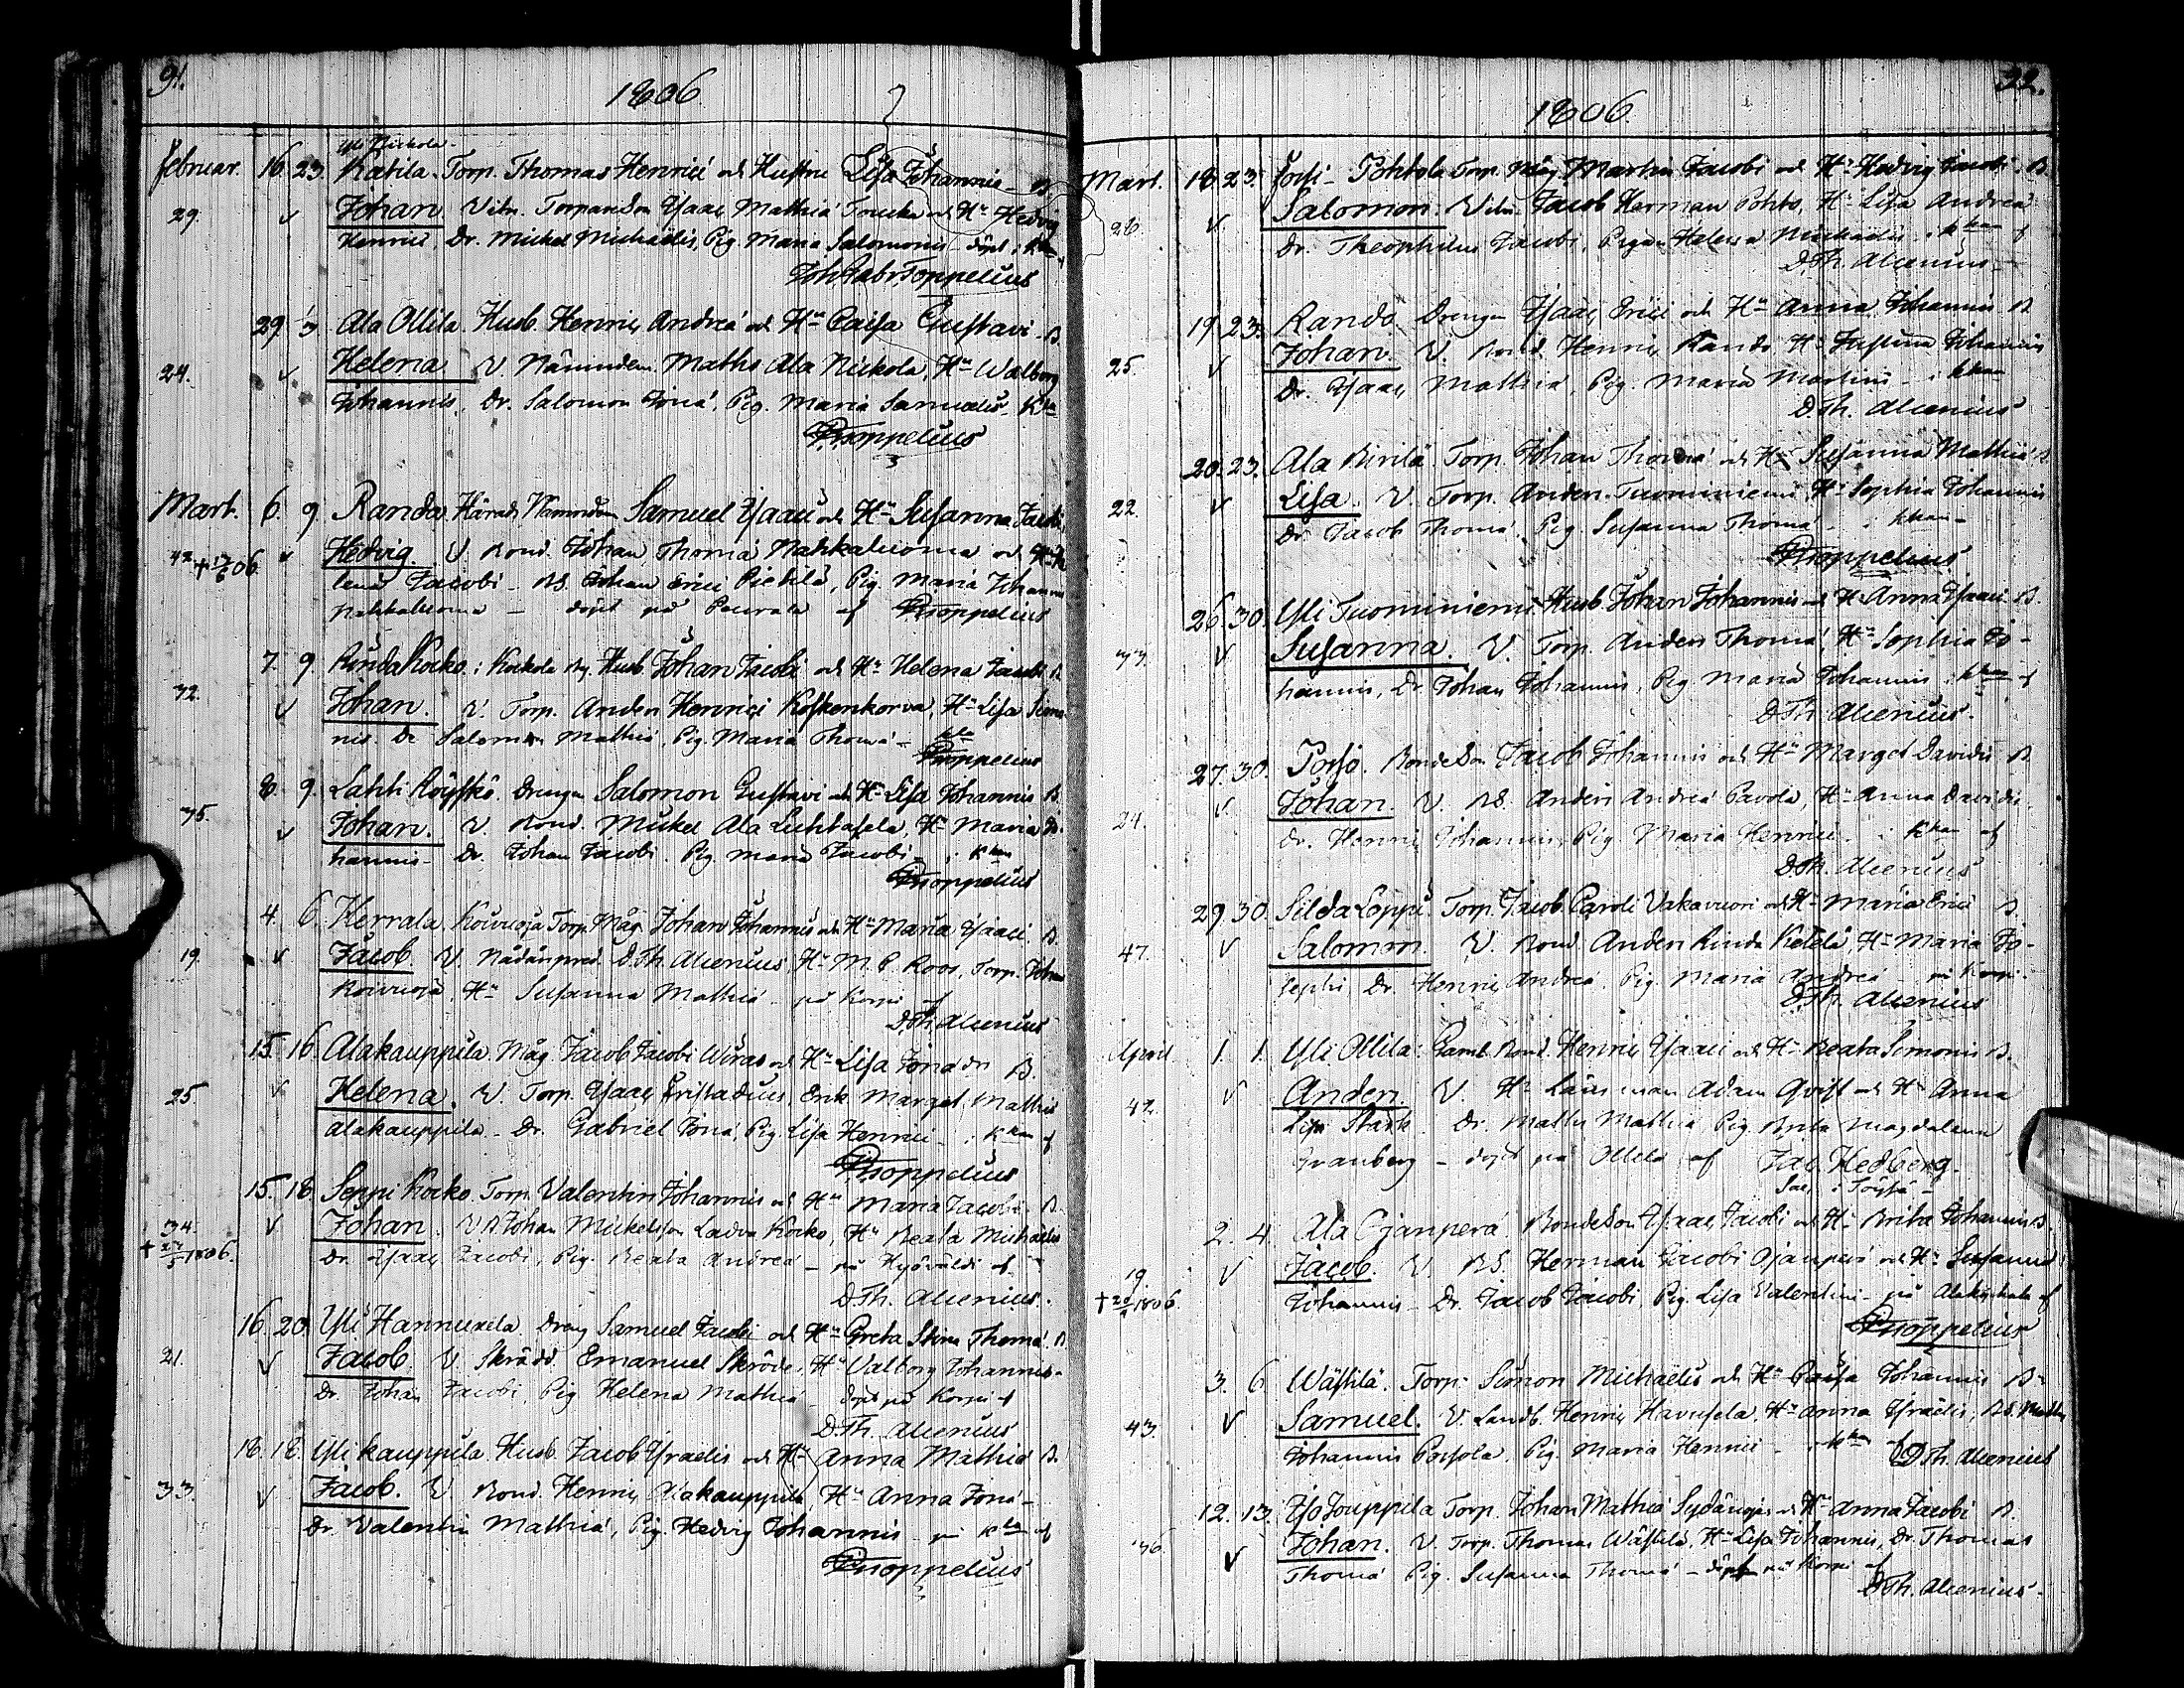 91.
1806
Yli Nickola
Februar. 16. 23. Katila Torp. Thomas Henrici och Hustru Lisa Johannis B
29. v Johan Vitn. Torparson Isaac Mathiæ och Hn Hedvig
Henrici, Dr. Michel Michaelis, Pig. Maria Salomonis döpt i Kkan af
Joh. Gabr. Toppelius
29 1/3 Ala Ollila. Husb. Henric Andreæ och Hn Caisa Gustavi B.
24. v Helena V. Nämndem. Maths Ala Nickola, Hn Walborg
Johannis, Dr. Salomon Jonæ, Pig. Maria Samuelis
Toppelius
Mart. 6. 9 Randa Härads Nämndem Samuel Isaaci och Hn Susanna Jacobi
42 v Hedvig. V. Bond. Johan Thomæ Nahkaluoma och
lena Jacobi BS. Johan Erici Pietilä, Pig. Maria Johannis
Nahkaluoma döpt på af Toppelius
7. 9. Rinda Kocko i Kockola by Husb. Johan Jacobi och Hn Helena Jacobi B
32. v Johan. V. Torp. Anders Henrici Koskenkorva, Hn Lisa Simo
nis. Dr Salomon Mathiæ, Pig. Maria Thomæ
Toppelius
8. 9. Lahti Röyskö. Drengen Salomon Gustavi och Hn Lisa Johannis B.
35. v Johan. V. Bond. Mickel Ala Luhtasela, Hn Maria Jo
hannis Dr. Johan Jacobi. Pig. Maria Jacobi i Kkan
Toppelius
4. 6. Kerrala Koivuoja Torp. Måg Johan Johannis och Hn Maria Isaaci. B.
19. v Jacob V. Nådårspred. D. Th. Alcenius Hn M. C. Roos, Torp. Johan
Koivuoja, Hn Susanna Mathiæ på Korpi af
D. Th. Alcenius
15. 16. Alakauppila. Måg Jacob Jacobi och Hn Lisa Jonædr B.
25 v Helena. V. Torp. Isaac, Erik Marget Mathiæ
Alakauppila. Dr. Gabriel Jonæ, Pig. Lisa Henrici i Kkan af
Toppelius
15. 18. Seppi Kocko. Torp. Valentin Johannis och Hn Maria Jacobi B.
34. † 1806. v Johan. V. Johan Mickelsson Ladva Kocko, Hn Beata Michaelis
Dr. Isaac Jacobi, Pig. Beata Andreæ på af
D. Th. Alcenius.
16. 20. Yli Hannuxela. Dreng Samuel Jacobi och Hn Greta Stina Thomæ. B
21. v Jacob. V. Skrädd. Emanuel, Hn Valborg Johannis
Dr. Johan Jacobi, Pig Helena Mathiæ döpt på Korpi af
D. Th. Alcenius
18. 18. Yli kauppila. Husb. Jacob Israelis och Hn Anna Mathiæ B.
33. v Jacob. V. Bond. Henric Alakauppila Hn Anna Jonæ
Dr. Valentin Mathiæ, Pig. Hedvig Johannis af
Toppelius
92.
1806.
Mart. 18. 23. Pohtola Torp. Måg Martin Jacobi och Hn Hedvig Jacobi B.
26. v. Salomon. Vitn. Jacob Herman Pohto, Hn Lisa Andreæ
Dr. Theophilus Jacobi, Pigan Helena Michaelis i Kkan af
D. Th. Alcenius
19. 23. Rando Drengen Isaac Erici och Hn Anna Johannis B
25. v Johan. V. Bond. Henric Rando Hn Justina Johannis
Dr. Isaac Mathiæ, Pig. Maria Martini i Kkan
D. Th. Alcenius
20. 23. Ala Torp. Johan Thomæ och Hn Susanna Mathiæ B
22. v Lisa V. Torp. Anders Tuominiemi Hn Sophia Johannis
Dr Jacob Thomæ. Pig. Susanna Thomæ i Kkan
Toppelius
26. 30. Yli Tuominiemi Husb Johan Johannis och Hn Anna Isaaci B.
33. v Susanna. V. Torp. Anders Thomæ, Hn Sophia Jo
hannis, Dr Johan Johannis, Pig Maria Johannis i Kkan af
D. Th. Alcenius.
27. 30. Bondeson Jacob Johannis och Hn Marget Davidis B
24. v. Johan. V. BS. Anders Andreæ Pavola, Hn Anna Davidis.
Dr. Henric Johannis, Pig. Maria Henrici i Kkan af
D. Th. Alcenius
29. 30. Silda Loppi Torp. Jacob Caroli Vakavuori och Hn Maria Erici B.
47. v Salomon. V. Bond. Anders Rinda Ketelä, Hn Maria Jo
sephi, Dr. Henric Andreæ. Pig. Maria Andreæ på Korpi.
D. Th. Alcenius
April 1. 1. Yli Ollila. Gaml. Bond. Henric Isaaci och Hn Beata Simonis B.
42. v Anders. V. Hr Länsman Adam Qvist och Hn Anna
Lisa Stark. Dr. Maths Mathiæ, Pig. Brita Magdalena
Granberg döpt på Ollila af Jac. Hedberg.
Sac. i
2. 4. Ala Ojanperä. Bondeson Isaac Jacobi och Hn Brita Johannis B.
19. † 1806. v Jacob. V. BS. Herman Jacobi Ojanperä och Hn Susanna
Johannis Dr. Jacob Jacobi, Pig. Lisa Valentini på af
Toppelius
3. 6. Wästilä. Torp. Simon Michaelis och Hn Caisa Johannis B.
43. v Samuel. V. Landb. Henric Havusela, Hn Anna Israelis, BS. Maths
Johannis, Pig. Maria Henrici i Kkan af D. Th. Alcenius
12. 13. Iso Jouppila Torp. Johan Mathiæ och Hn Anna Jacobi B.
36. v Johan. V. Torp. Thomas Wästilä, Hn Lisa Johannis, Dr. Thomas
Thomæ Pig. Susanna Thomæ döpt på Korpi af
D. Th. Alcenius.